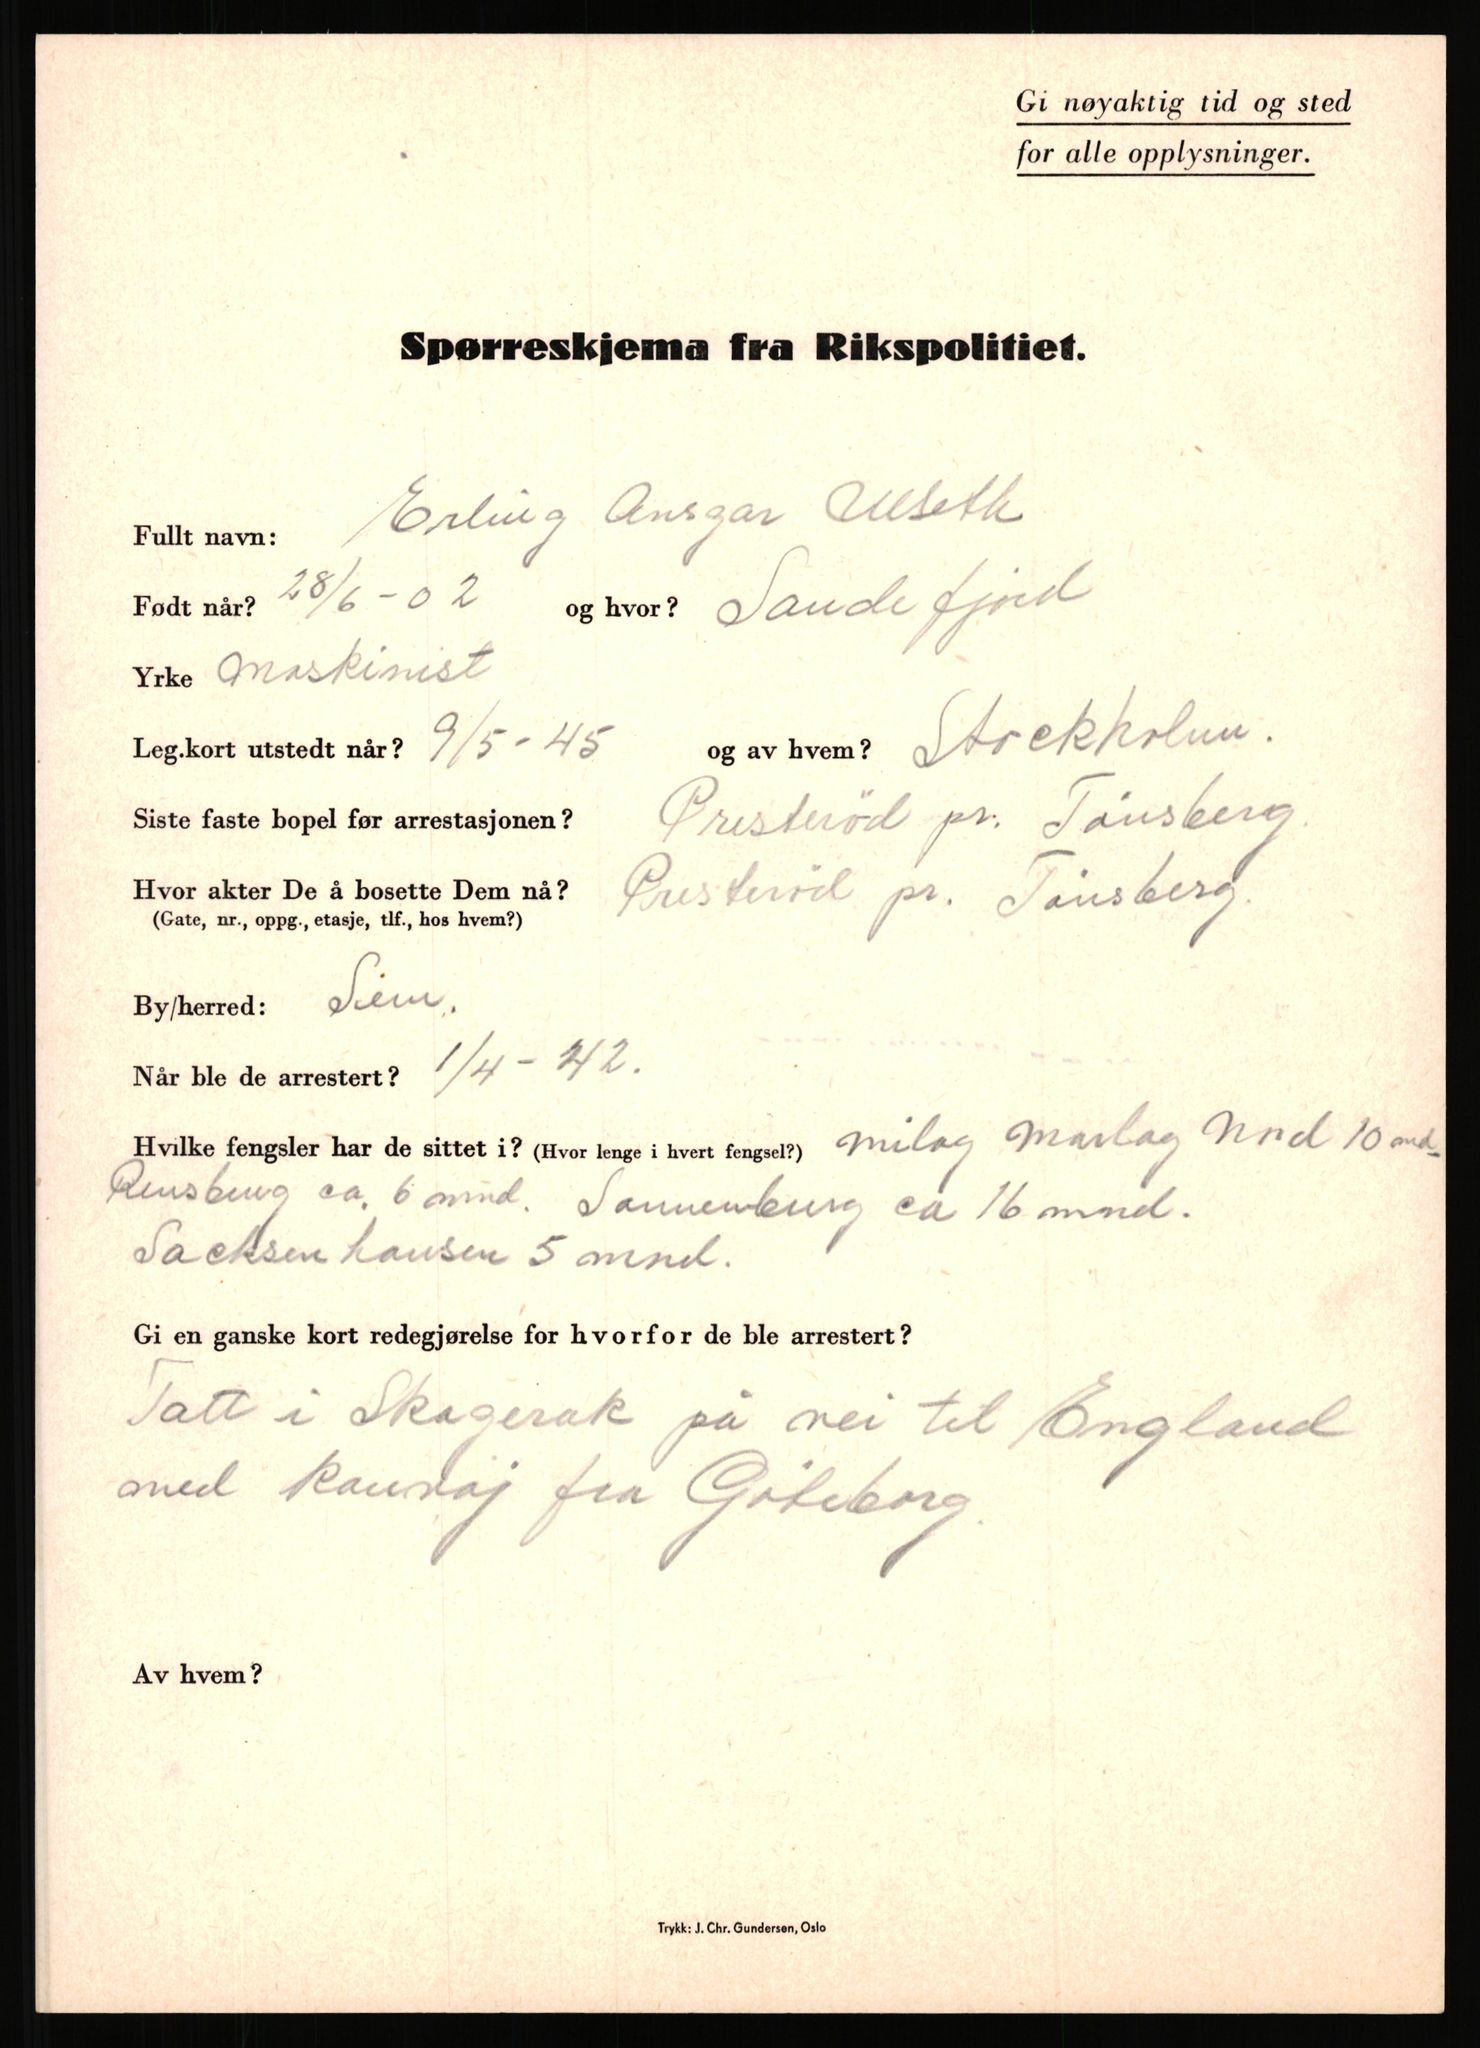 Gi nøyaktig tid og sted
for alle opplysninger.
Spørreskjema fra Rikspolitiet.
Fullt navn: Erling Ansgar Ulseth
Født når? 28/6 - 02 og hvor? Sandefjord
Yrke Maskinist
Leg.kort utstedt når? 9/5 - 45 og av hvem? Stockholm.
Siste faste bopel før arrestasjonen? Presteröd pr. Tönsberg.
Hvor akter De å bosette Dem nå? Presteröd pr. Tönsberg.
(Gate, nr., oppg., etasje, tlf., hos hvem?)
By/herred: Siem.
Når ble de arrestert? 1/4 - 42.
Hvilke fengsler har de sittet i? (Hvor lenge i hvert fengsel?) Milag Marlag Nord 10 mnd
Rensburg ca. 6 mnd. Sonnenburg ca 16 mnd.
Sacksenhausen 5 mnd.
Gi en ganske kort redegjørelse for hvorfor de ble arrestert?
Tatt i Skagerak på vei til England
med konvoj fra Göteborg.
Av hvem?
Trykk: J. Chr. Gundersen, Oslo